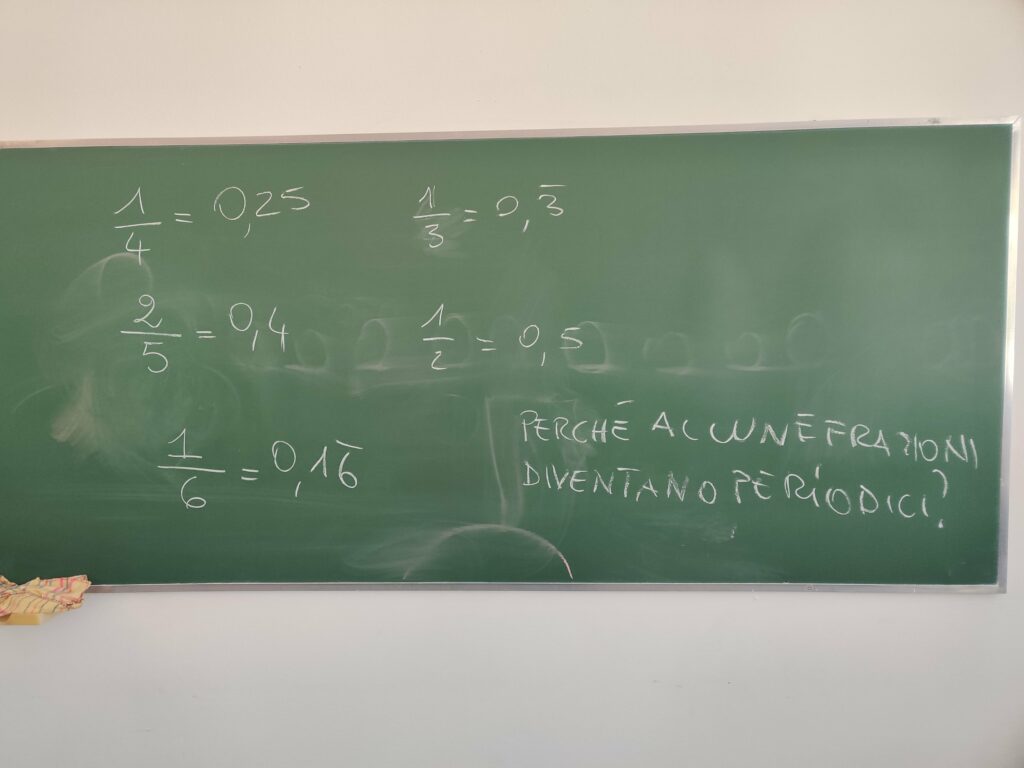 1/4 = 0,25
1/3 = 0,3̅
2/5 = 0,4
1/2 = 0,5
1/6 = 0,16̅
PERCHÉ ALCUNE FRAZIONI
DIVENTANO PERIODICI?